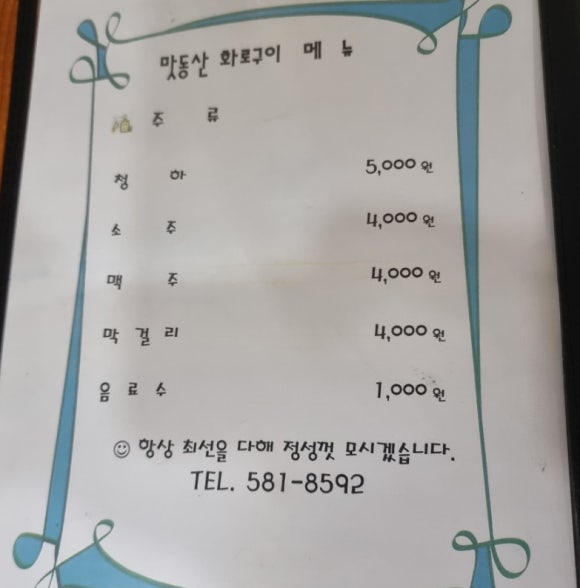 맛동산 화로구이 메 뉴
주 류
청 하 5,000 원
소 주 4,000 원
맥 주 4,000 원
막 걸 리 4,000 원
음 료 수 1,000 원
☺ 항상 최선을 다해 정성껏 모시겠습니다.
TEL. 581-8592